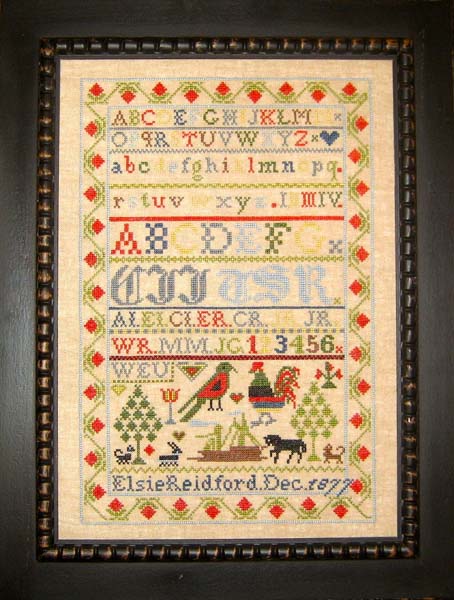 ABCDEFGHIJKLM
OPQRSTUVWXYZ
abcdefghiklmnopq.
rstuvwxyz.IIIIIV
ABCDEFG
TSR
AI.EI.CI.ER.CR. JR
WR.MM.JG.123456
WEU
Elsie Reidford.Dec.1877